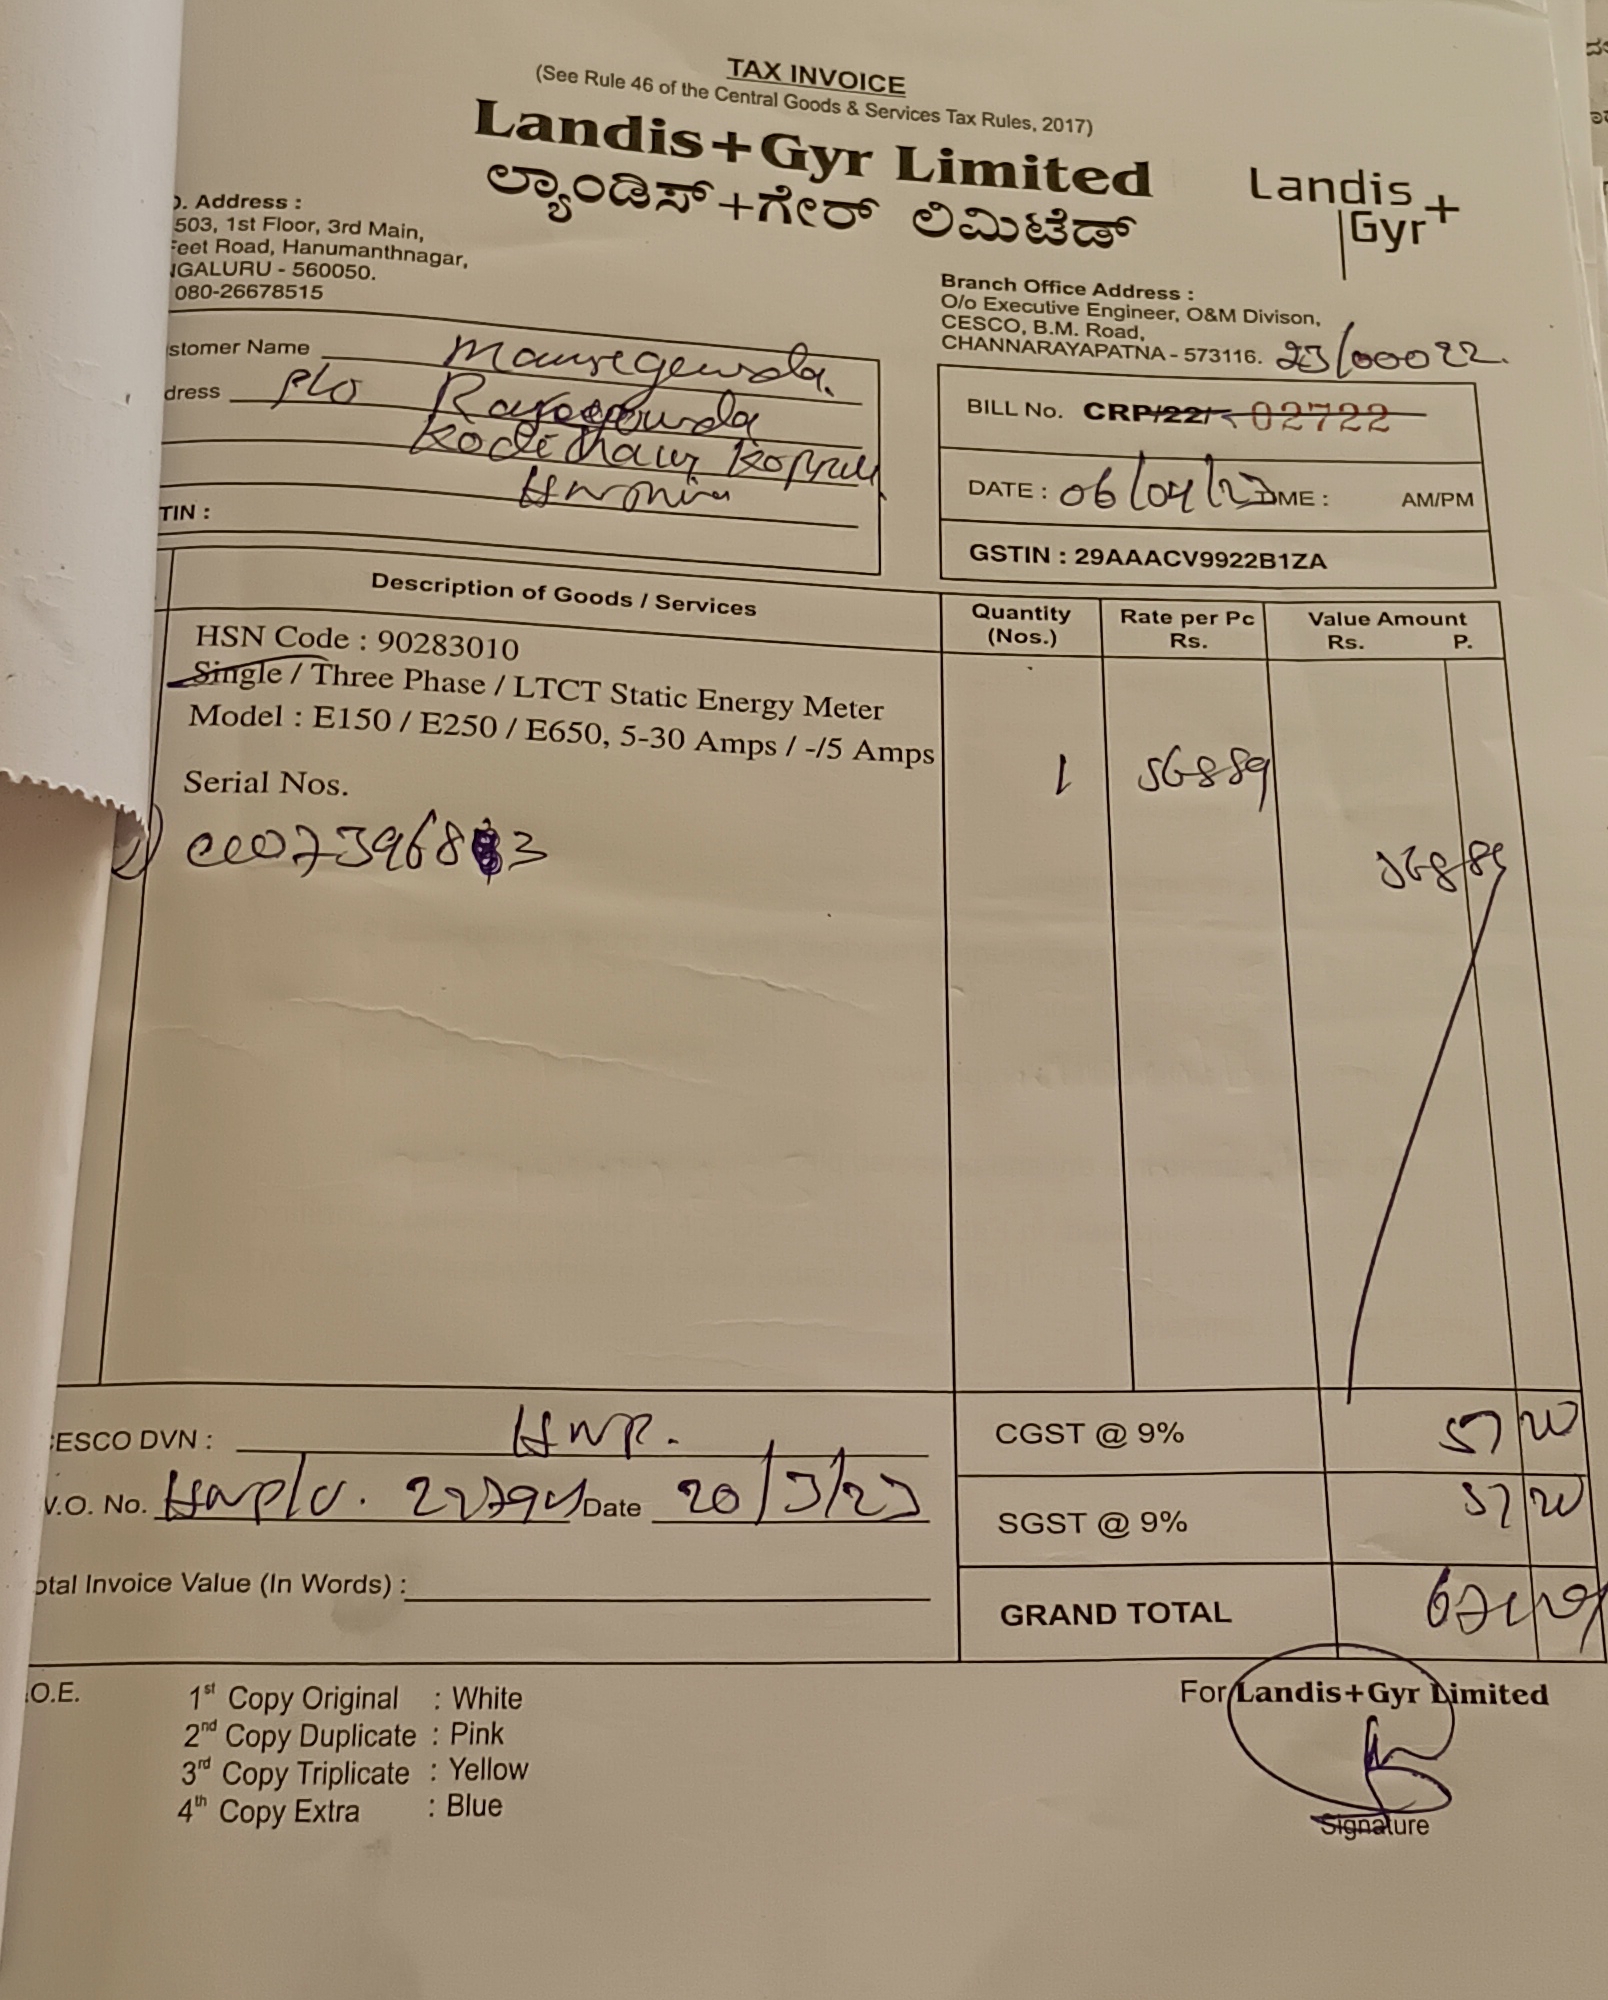 TAX INVOICE
(See Rule 46 of the Central Goods & Services Tax Rules, 2017)
Landis+Gyr Limited
ಲ್ಯಾಂಡಿಸ್+ಗೇರ್ ಲಿಮಿಟೆಡ್
Landis+
Gyr
. Address :
503, 1st Floor, 3rd Main,
Feet Road, Hanumanthnagar,
NGALURU - 560050.
080-26678515
Branch Office Address :
O/o Executive Engineer, O&M Divison,
CESCO, B.M. Road,
CHANNARAYAPATNA - 573116.
23/00022
stomer Name
dress
TIN :
BILL No. CRP/22/ 02722
DATE : 06/04/23 TIME : AM/PM
GSTIN : 29AAACV9922B1ZA
Description of Goods / Services
Quantity (Nos.)
Rate per Pc Rs.
Value Amount
Rs. P.
HSN Code : 90283010
Single / Three Phase / LTCT Static Energy Meter
Model : E150 / E250 / E650, 5-30 Amps / -/5 Amps
1
Serial Nos.
ESCO DVN : HNP.
.O. No. Date 20/3/23
otal Invoice Value (In Words) :
CGST @ 9%
SGST @ 9%
GRAND TOTAL
.O.E.
1st Copy Original : White
2nd Copy Duplicate : Pink
3rd Copy Triplicate : Yellow
4th Copy Extra : Blue
For Landis+Gyr Limited
Signature